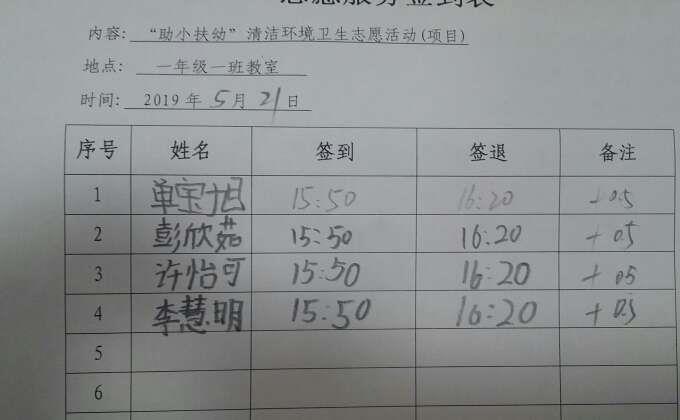 志愿服务签到表
内容: “助小扶幼”清洁环境卫生志愿活动(项目)
地点: 一年级一班教室
时间: 2019 年 5 月 21 日
序号 姓名 签到 签退 备注
1 单宝旭 15:50 16:20 +0.5
2 彭欣茹 15:50 16:20 +0.5
3 许怡可 15:50 16:20 +0.5
4 李慧明 15:50 16:20 +0.5
5
6